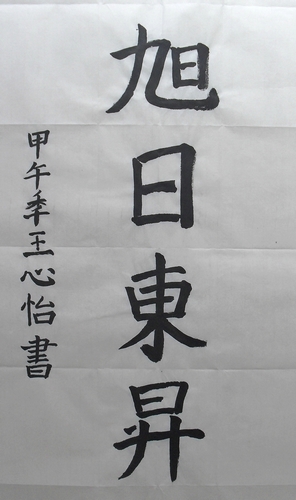 旭日東昇
甲午季王心怡書